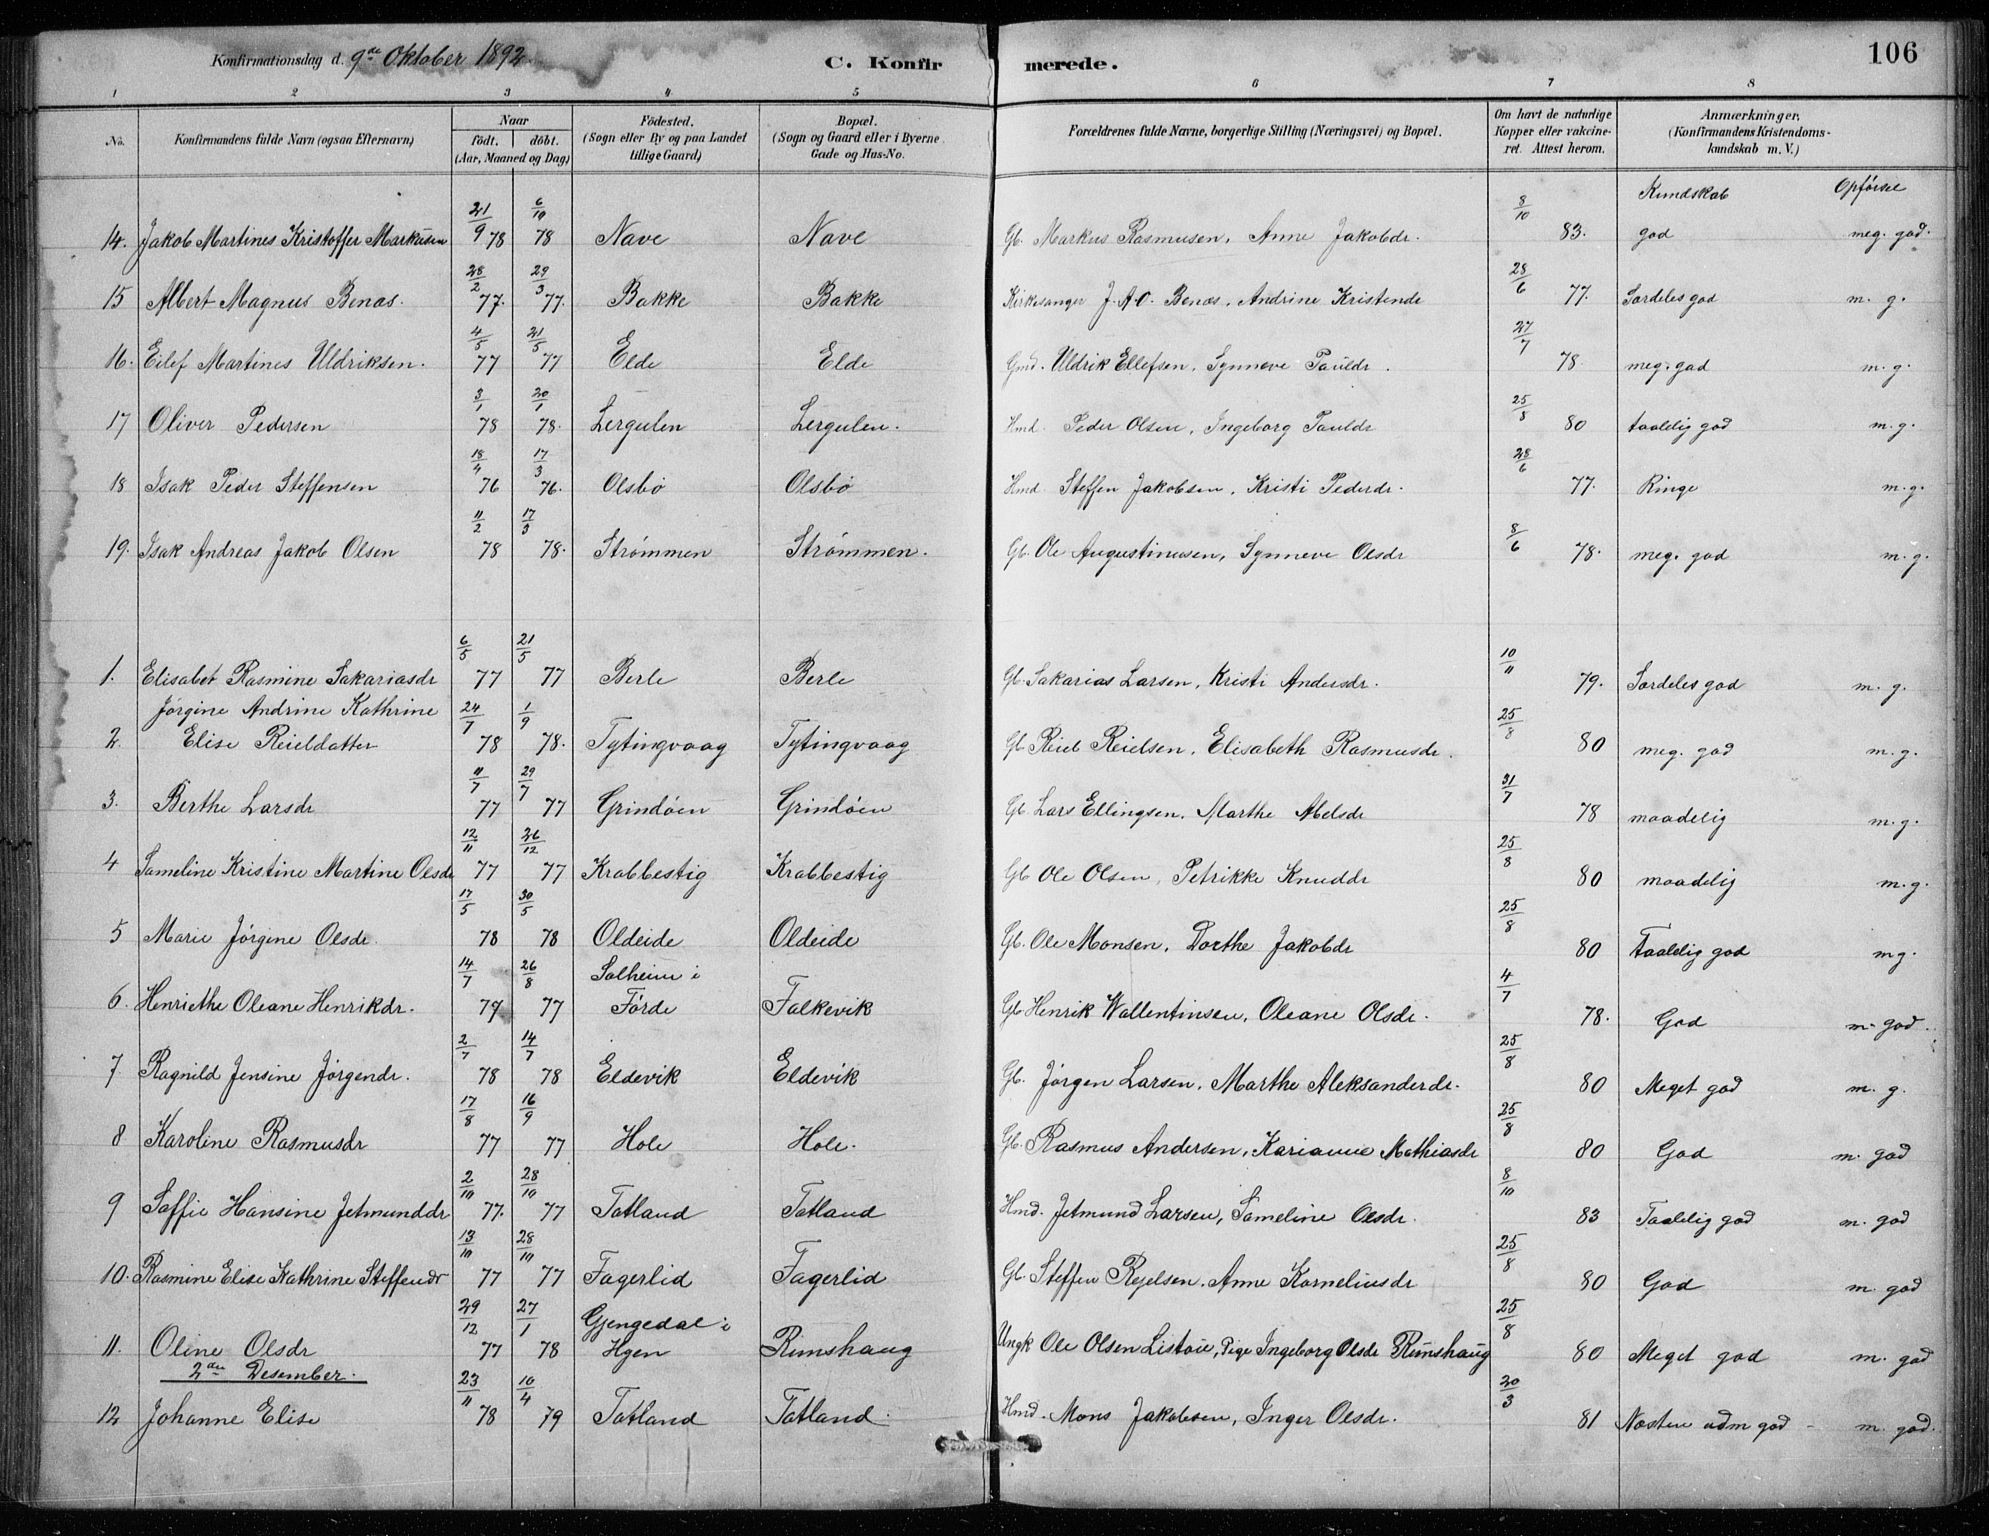 Konfirmationsdag d. 9de Oktober 1892 C. Konfirmerede. 106
1 2 3 4 5 6 7 8
No. Konfirmandens fulde Navn (ogsaa Efternavn) Naar født. døbt. (Aar, Maaned og Dag) Fødested. (Sogn eller By og paa Landet tillige Gaard) Bopæl. (Sogn og Gaard eller i Byerne Gade og Hus-No. Forældrenes fulde Navne, borgerlige Stilling (Næringsvei) og Bopæl. Om havt de naturlige Kopper eller vakcineret. Attest herom. Anmærkninger. (Konfirmandens Kristendomskundskab m. V.)
Kundskab Opførsel
14. Jakob Martines Kristoffer Markusen 21/9 78 6/10 78 Nave Nave Gb. Markus Rasmusen, Anne Jakobdr. 8/10 83. god meg. god.
15 Albert Magnus Benæs. 28/2 77. 29/3 77. Bakke Bakke Kirkesanger J. A. O. Benæs, Andrine Kristende 28/6 77. Særdeles god m. g.
16. Eilef Martines Uldriksen. 4/5 77 21/5 77 Elde Elde Gmd. Uldrik Ellefsen, Synneve Pauldr. 27/7 78. meg. god m. g.
17 Oliver Pedersen 3/1 78 20/1 78. Lergulen Lergulen. Hmd. Peder Olsen, Ingeborg Pauldr 25/8 80 taalelig god m. g.
18 Isak Peder Steffensen 18/4 76 17/3 76. Olsbø Olsbø Hmd. Steffen Jakobsen, Kristi Pederdr. 28/6 77. Ringe m. g.
19. Isak Andreas Jakob Olsen 11/2 78 17/3 78. Strømmen Strømmen. Gb. Ole Augustinusen, Synneve Olsdr 8/6 78. meg. god m. g.
1. Elisabet Rasmine Sakariasdr 6/5 77 21/5 77 Berle Berle Gb. Sakarias Larsen, Kristi Andersdr. 10/11 79. Særdeles god m. g.
2. Jørgine Andrine Kathrine
Elise Reieldatter 24/7 78 1/9 78. Tytingvaag Tytingvaag Gb Reiel Reielsen, Elisabeth Rasmusdr. 25/8 80 meg. god m. g.
3. Berthe Larsdr 11/7 77 29/7 77 Grindøen Grindøen Gb. Lars Ellingsen, Marthe Abelsdr 31/7 78 maadelig m. g.
4 Sameline Kristine Martine Olsdr 12/11 77 26/12 77 Krabbestig Krabbestig Gb Ole Olsen, Petrikke Knuddr 25/8 80 maadelig m. g.
5 Marie Jørgine Olsdr. 17/5 78 30/5 78 Oldeide Oldeide Gb. Ole Monsen, Dorthe Jakobdr 25/8 80 Taalelig god m g.
6. Henriethe Oleane Henrikdr. 14/7 77 26/8 77 Solheim i Førde Falkevik Gb Henrik Wallentinsen, Oleane Olsdr. 4/7 78. God m. god.
7 Ragnild Jensine Jørgendr. 2/7 78 14/7 78 Eldevik Eldevik Gb. Jørgen Larsen, Marthe Aleksanderdr. 25/8 80 Meget god m. g.
8 Karoline Rasmusdr 17/8 77 16/9 77 Hole Hole. Gb. Rasmus Andersen, Karianne Mathiasdr 25/8 80 God m. god
9 Soffie Hansine Jetmunddr 2/10 77. 28/10 77 Totland Totland Hmd. Jetmund Larsen, Sameline Olsdr. 8/10 83 Taalelig god m. god
10. Rasmine Elise Kathrine Steffendr 13/10 77 28/10 77 Fagerlid Fagerlid Gb. Steffen Rejelsen, Anne Korneliusdr 25/8 80 God m. god
11. Oline Olsdr 29/12 77 27/1 78 Gjengedal i Hyen Rimshaug Ungk Ole Olsen Listøie, Pige Ingeborg Olsdr Rimshaug 25/8 80 Meget god m. god
2den Desember.
12 Johanne Elise 23/11 78 10/4 79 Totland Totland. Hmd. Mons Jakobsen, Inger Olsdr. 20/3 81 Næsten udm god - m. god.